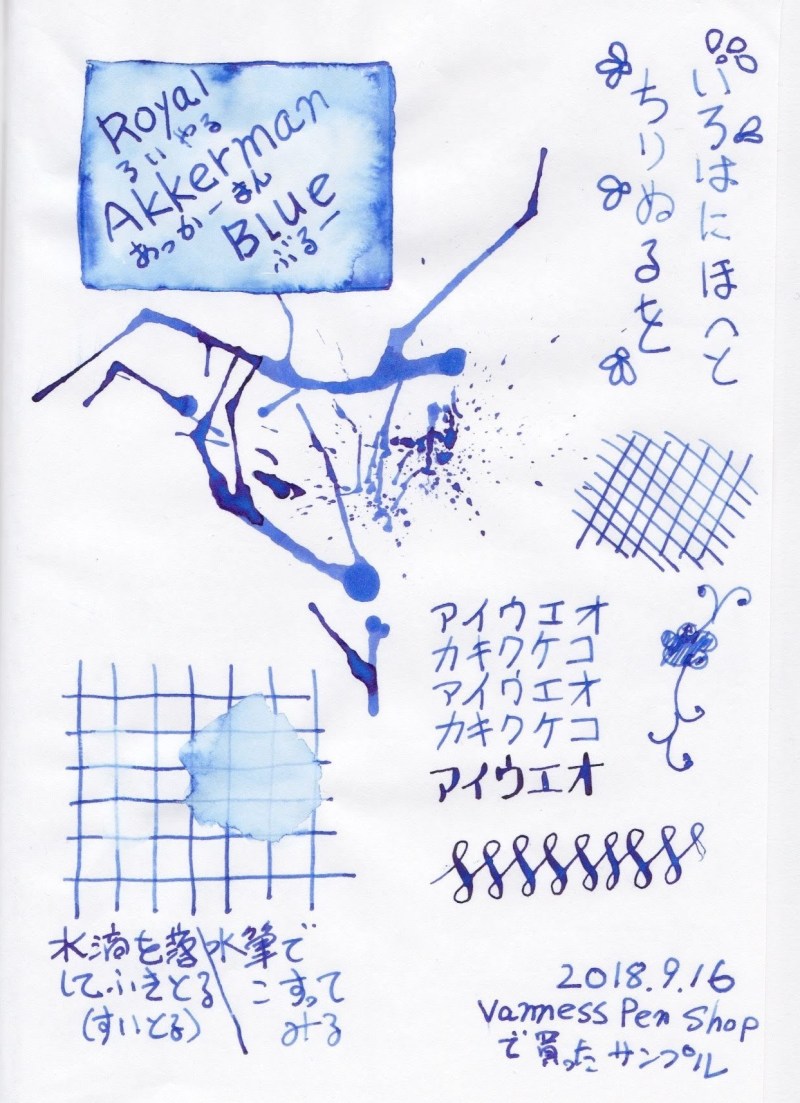 Royal
ろいやる
Akkerman
あっかーまん
BLUE
ぶるー
いろはにほへと
ちりぬるを
アイウエオ
カキクケコ
アイウエオ
カキクケコ
アイウエオ
水滴を落
してふきとる
(すいとる)
水筆で
こすって
みる
2018.9.16
Vanness Pen Shop
で買ったサンプル